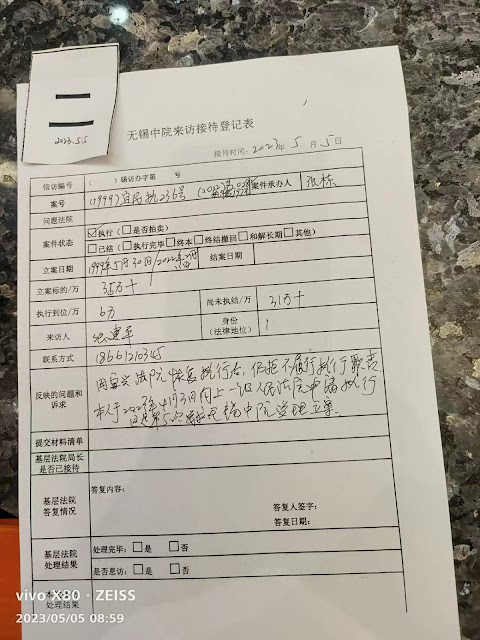 二
2023.5.5
无锡中院来访接待登记表
接待时间: 2023年 5 月 5 日
信访编号 ( ) 锡访办字第 号
案号 (1999)宜民执236号 案件承办人 张栋
问题法院
案件状态 ☑执行(□是否拍卖)
□已结(□执行完毕□终本□终结撤回□和解长期□其他)
立案日期 1999年5月30日/2022年 结案日期
立案标的/万 35万+
执行到位/万 6万 尚未执结/万 31万+
来访人 身份
(法律地位)
联系方式 18661210345
反映的问题和
诉求
因宜兴法院恢复执行后,仍拒不履行执行职责
本人于2023年4月3日向上一级人民法院申请执行
无锡中院受理立案.
提交材料清单
基层法院局长
是否已接待
基层法院
答复情况
答复内容:
答复人签字:
答复日期:
基层法院
处理结果
处理完毕: □是 □否
是否息访: □是 □否
处理结果
vivo X80 · ZEISS
2023/05/05 08:59